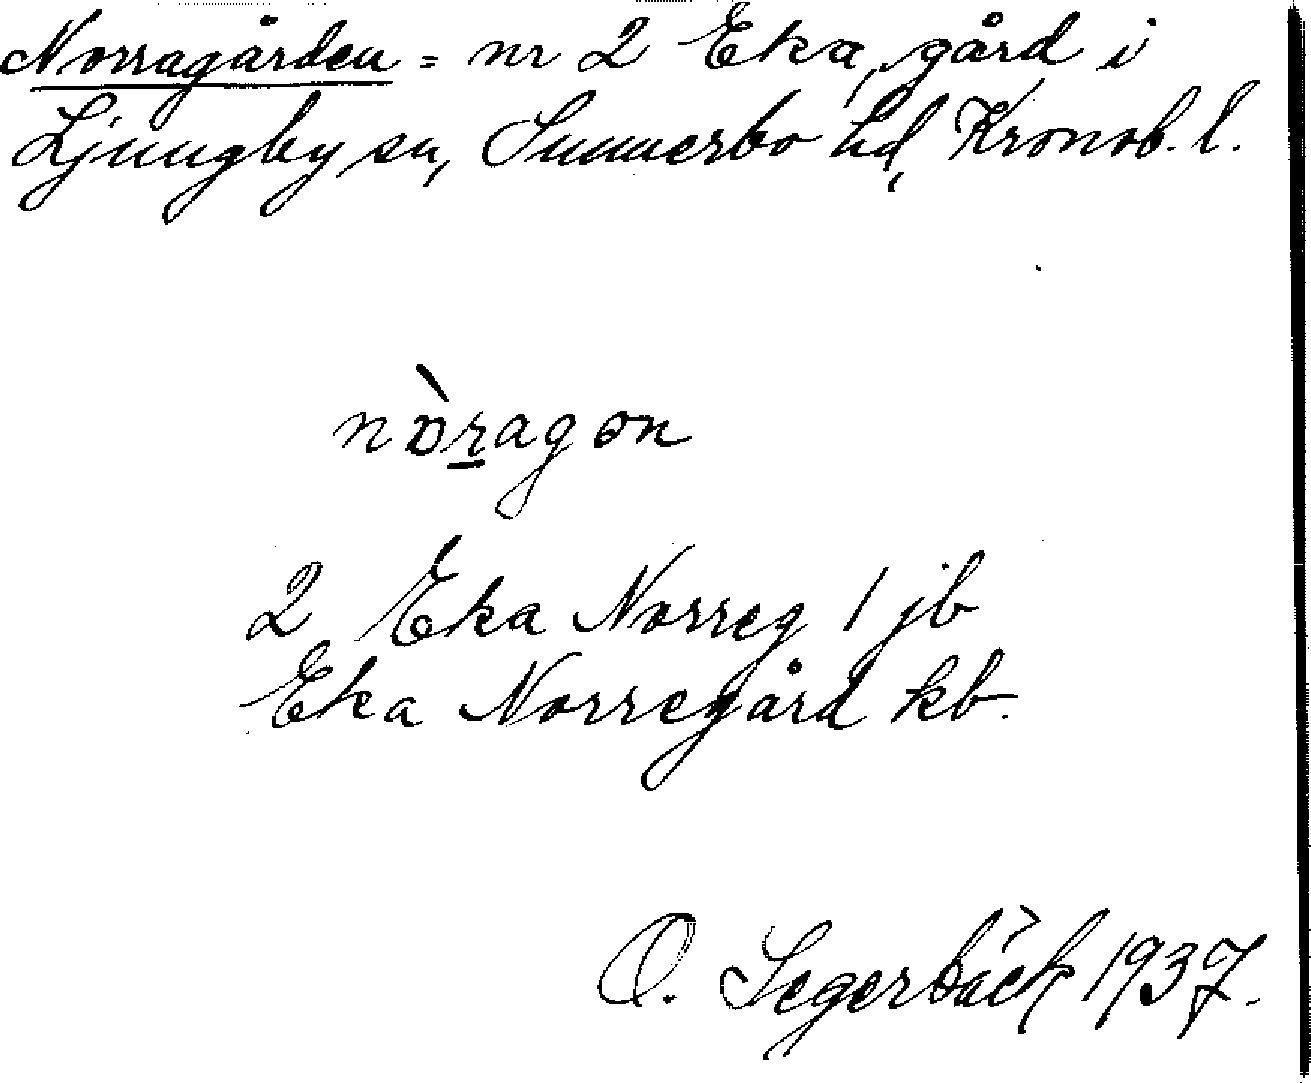 Norragården = nr 2 Eka, gård i
Ljungby sn, Sunnerbo hd, Kronob. l.
nɒ̀ragən
2 Eka Norreg 1 jb
Eka Norregård kb.
O. Segerbäck 1937.